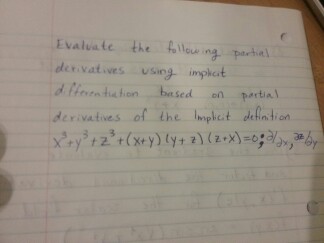 Evaluate the following partial
derivatives using implicit
differentiation based on partial
derivatives of the Implicit definition
x³+y³+z³+(x+y)(y+z)(z+x)=0; ∂/∂x, ∂z/∂y